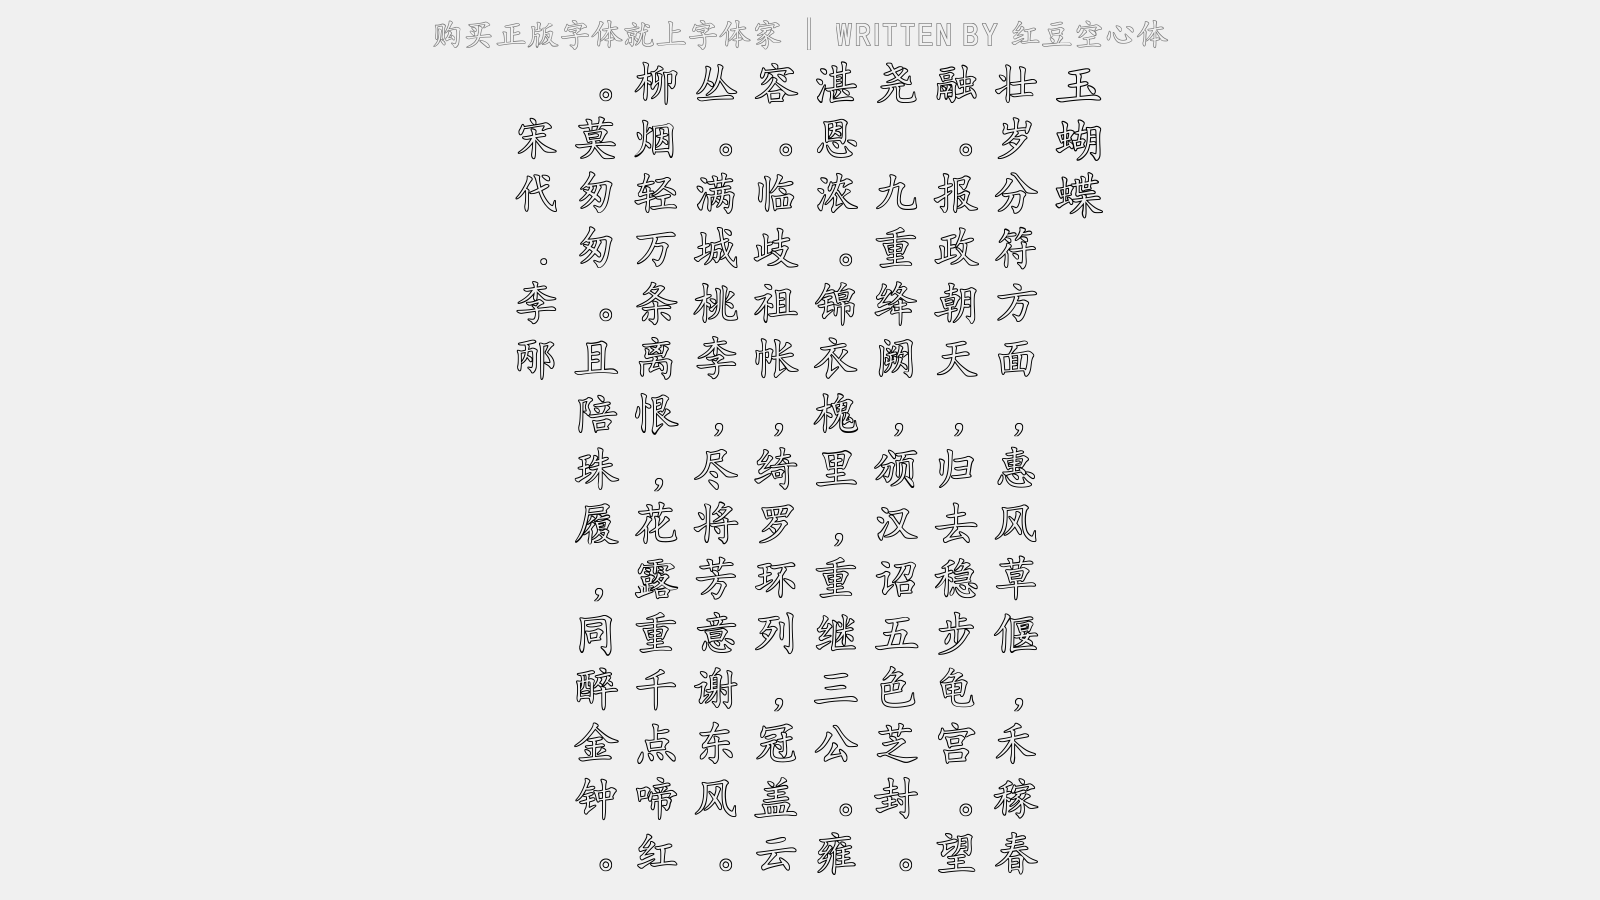 购买正版字体就上字体家 | WRITTEN BY 红豆空心体
玉蝴蝶
壮岁分符方面，惠风草偃，禾稼春
融。报政朝天，归去稳步龟宫。望
尧 九重绛阙，颁汉诏五色芝封。
湛恩浓。锦衣槐里，重继三公。雍
容。临歧祖帐，绮罗环列，冠盖云
丛。满城桃李，尽将芳意谢东风。
柳烟轻万条离恨，花露重千点啼红
。莫匆匆。且陪珠履，同醉金钟。
宋代.李邴